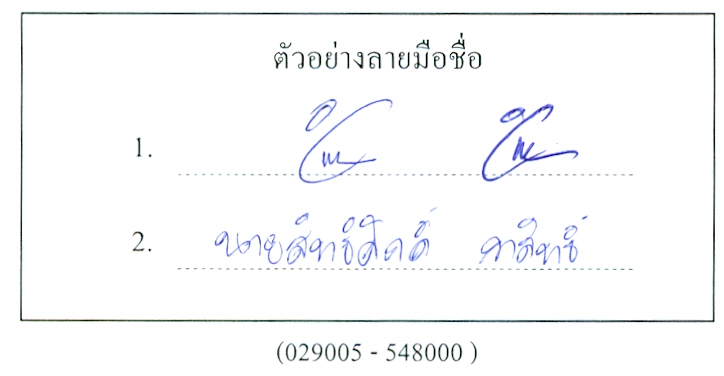 ตัวอย่างลายมือชื่อ
1.
2. นายสิทธิศักดิ์ ภาสิทธิ์
(029005 - 548000 )